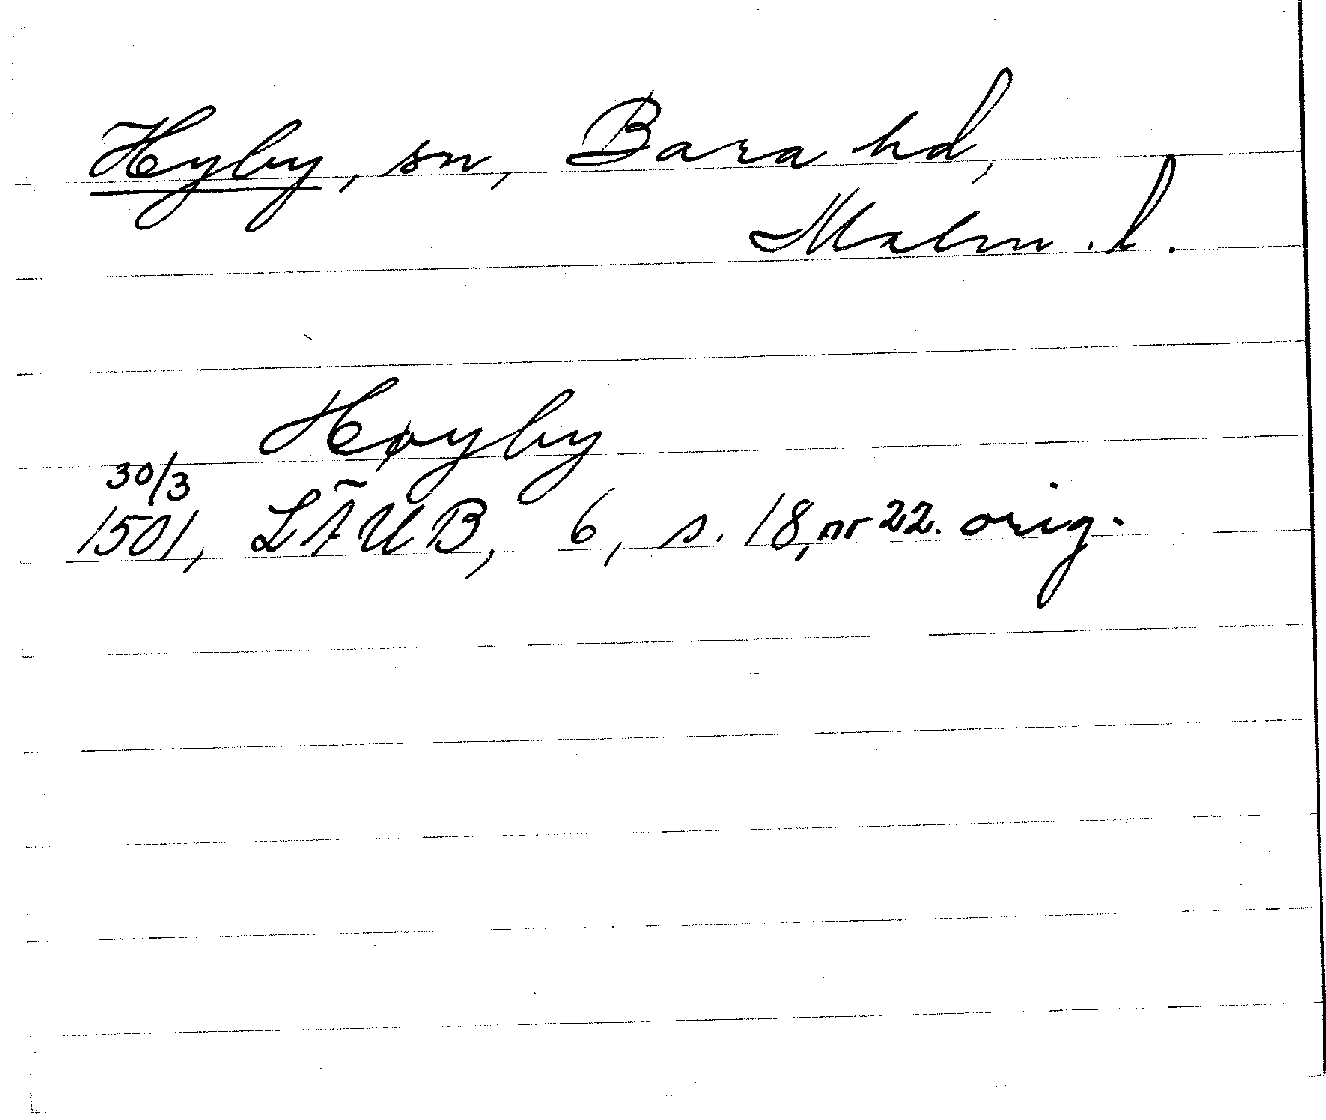 Hyby, sn, Bara hd,
Malm. l.
Høyby
30/3
1501, LÄUB, 6, s. 18, nr 22. orig.